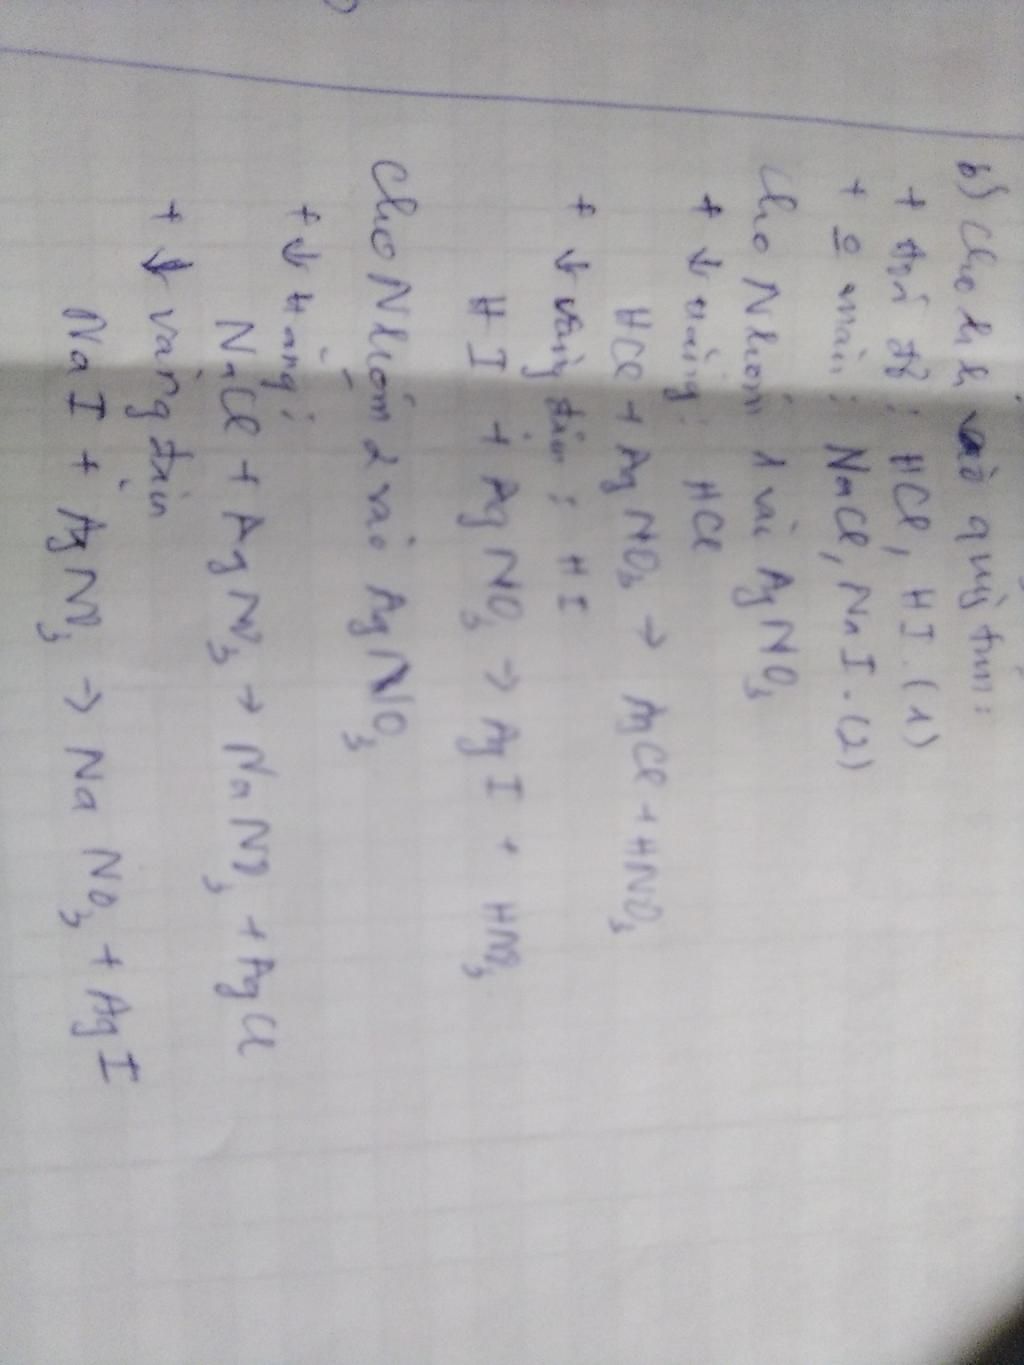 b) Cho hh vào quỳ tím:
+ đỏ : HCl, HI. (1)
+ o màu : NaCl, NaI. (2)
Cho Nhóm 1 vào AgNO3
+ ↓ trắng : HCl
HCl + AgNO3 → AgCl + HNO3
+ ↓ vàng đậm : HI
HI + AgNO3 → AgI + HNO3
Cho Nhóm 2 vào AgNO3
+ ↓ trắng :
NaCl + AgNO3 → NaNO3 + AgCl
+ ↓ vàng đậm
NaI + AgNO3 → NaNO3 + AgI